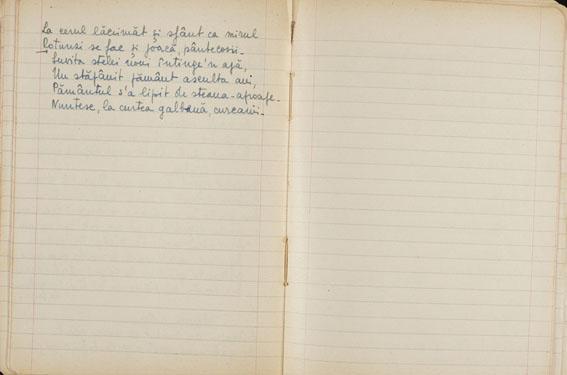 La cerul lăcrimăt și sfânt ca mirul
Rotunzi se fac și joacă, pântecoșii.
Șuvița stelei noui întinge'n apă,
Un stăpânit pământ ascultă
Pământul s'a lipit de steaua-aproape.
Nuntesc, la curtea galbănă, curcanii.